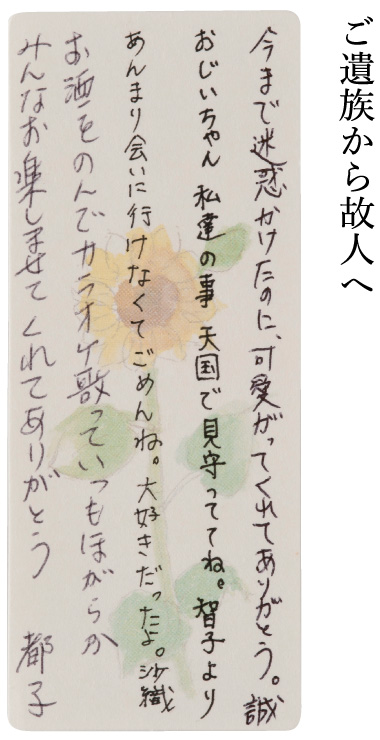 ご遺族から故人へ
今まで迷惑かけたのに、可愛がってくれてありがとう。誠
おじいちゃん 私達の事 天国で見守っててね。智子より
あんまり会いに行けなくてごめんね。大好きだったよ。沙織
お酒をのんでカラオケ歌っていつもほがらか
みんなお楽しませてくれてありがとう 都子